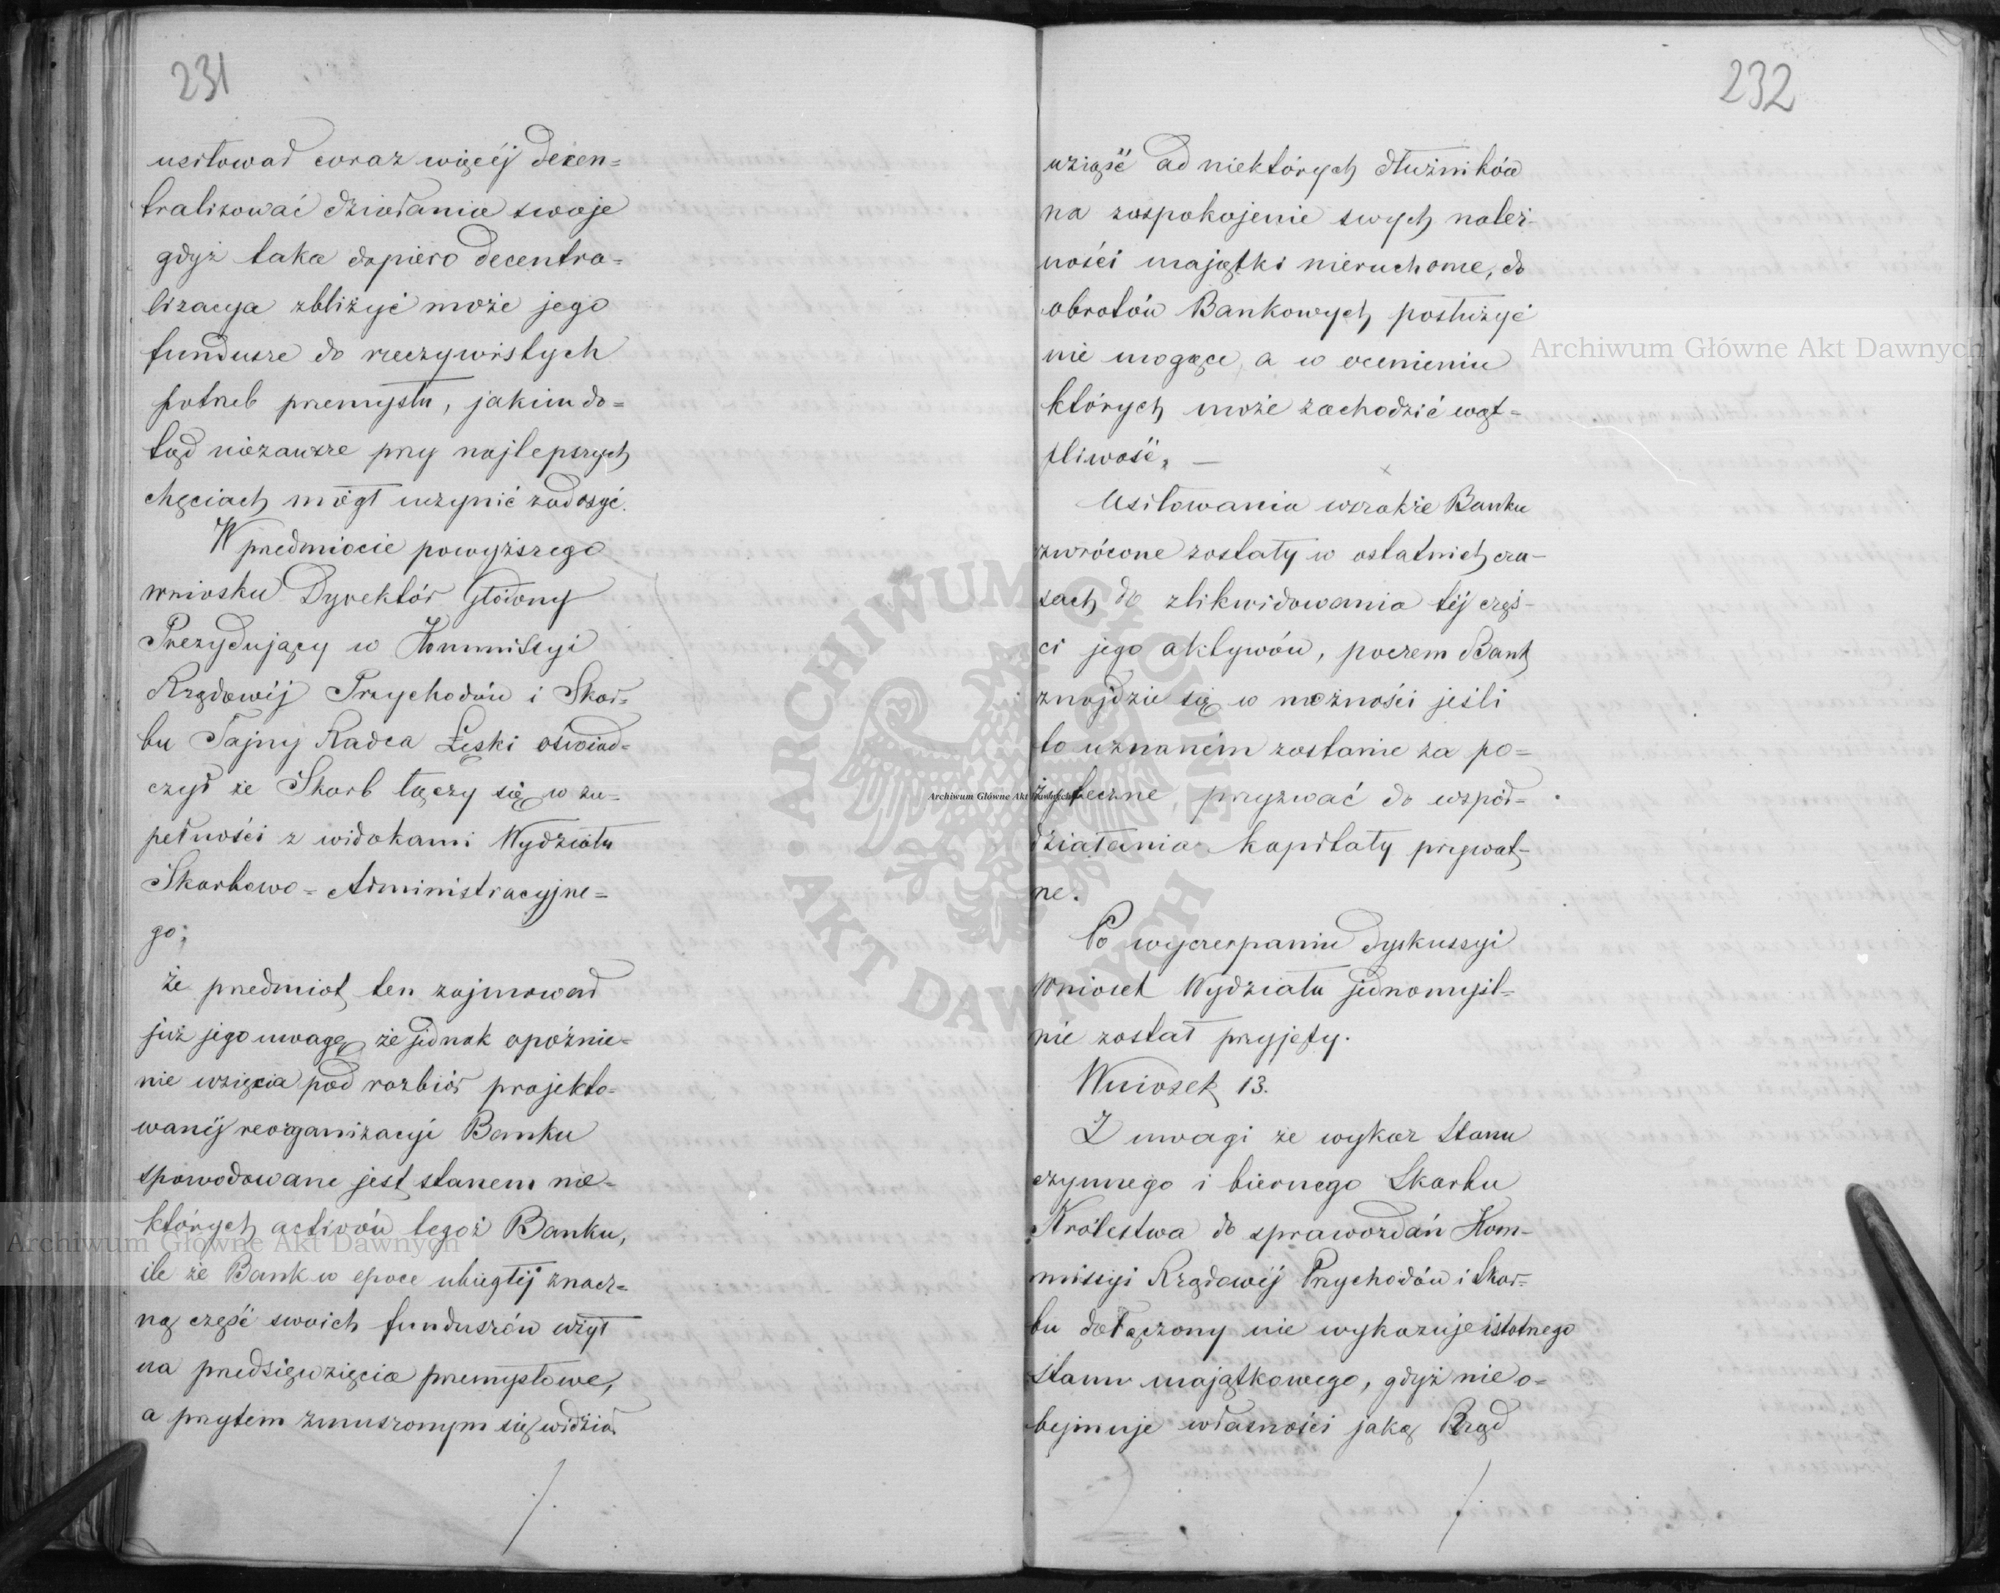 231
usiłował coraz więcéj decen=
tralizować działania swoje
gdyż taka dopiero decentra=
lizacya zbliżyć może jego
fundusze do rzeczywistych
potrzeb przemysłu, jakim do=
tąd niezawsze przy najlepszych
chęciach mógł uczynić zadosyć.
W przedmiocie powyższego
wniosku Dyrektór Główny
Prezydujący w Kommissyi
Rządowéj Przychodów i Skar=
bu Tajny Radca Łęski oświad=
czył że Skarb łączy się w zu=
pełności z widokami Wydziału
Skarbowo=Administracyjne=
go;
że przedmiot ten zajmował
już jego uwagę, że jednak opóźnie=
nie wzięcia pod rozbiór projekto=
wanéj reorganizacyi Banku
spowodowane jest stanem nie=
których activów tegoż Banku,
ile że Bank w epoce ubiegłéj znacz=
ną część swoich funduszów użył
na przedsięwzięcia przemysłowe,
a przytem zmuszonym się widział
./.
232
wziąść od niektórych dłużników
na zaspokojenie swych należ=
ności majątki nieruchome, do
obrotów Bankowych posłużyć
nie mogące, a w ocenieniu
których może zachodzić wąt=
pliwość. —
Usiłowania wszakże Banku
zwrócone zostały w ostatnich cza=
sach do zlikwidowania téj częś=
ci jego aktywów, poczem Bank
znajdzie się w możności jeśli
to uznaném zostanie za po=
żyteczne, przyzwać do współ=
działania kapitały prywat=
ne.
Po wyczerpaniu dyskussyi
Wniosek Wydziału jednomyśl=
nie został przyjęty.
Wniosek 13.
Z uwagi że wykaz stanu
czynnego i biernego Skarbu
Królestwa do sprawozdań Kom=
missyi Rządowéj Przychodów i Skar=
bu dołączony nie wykazuje istotnego
stanu majątkowego, gdyż nie o=
bejmuje własności jaką Rząd
./.
Archiwum Główne Akt Dawnych
Archiwum Główne Akt Dawnych
Archiwum Główne Akt Dawnych
ARCHIWUM GŁÓWNE · AKT DAWNYCH ·